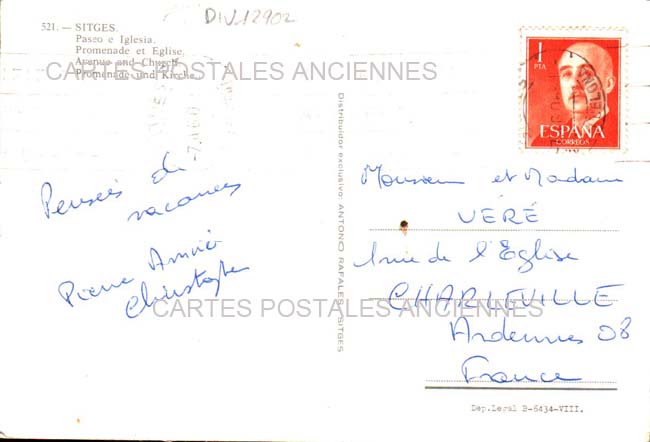 DIV-12902
521. — SITGES.
Paseo e Iglesia.
Promenade et Eglise.
Avenue and Church.
Promenade und Kirche.
CARTES POSTALES ANCIENNES
1
PTA
ESPAÑA
CORREOS
Pensées de
vacances
Pierre Annie
Christophe
Distribuidor exclusivo: ANTONIO RAFALES - SITGES
Monsieur et Madame
VÉRÉ
1 rue de l'Eglise
CHARLEVILLE
Ardennes 08
France
CARTES POSTALES ANCIENNES
Dep. Legal B-6434-VIII.